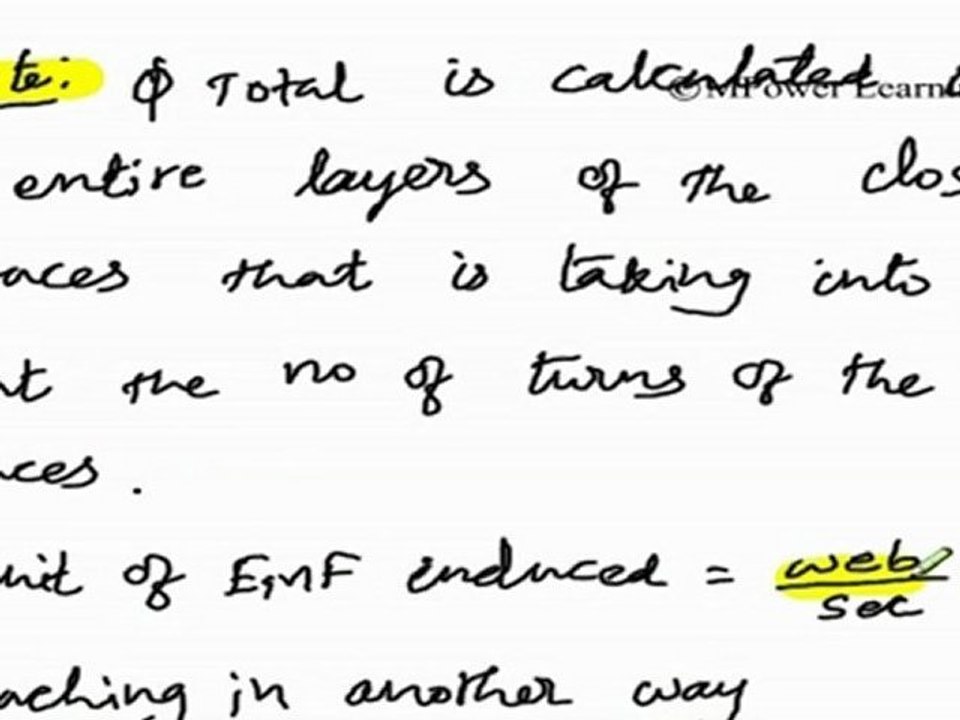 te: φ Total is calculated
©MPower Learn
entire layers of the clos
aces that is taking into
nt the no of turns of the
ces.
nit of EMF induced = web/sec
aching in another way